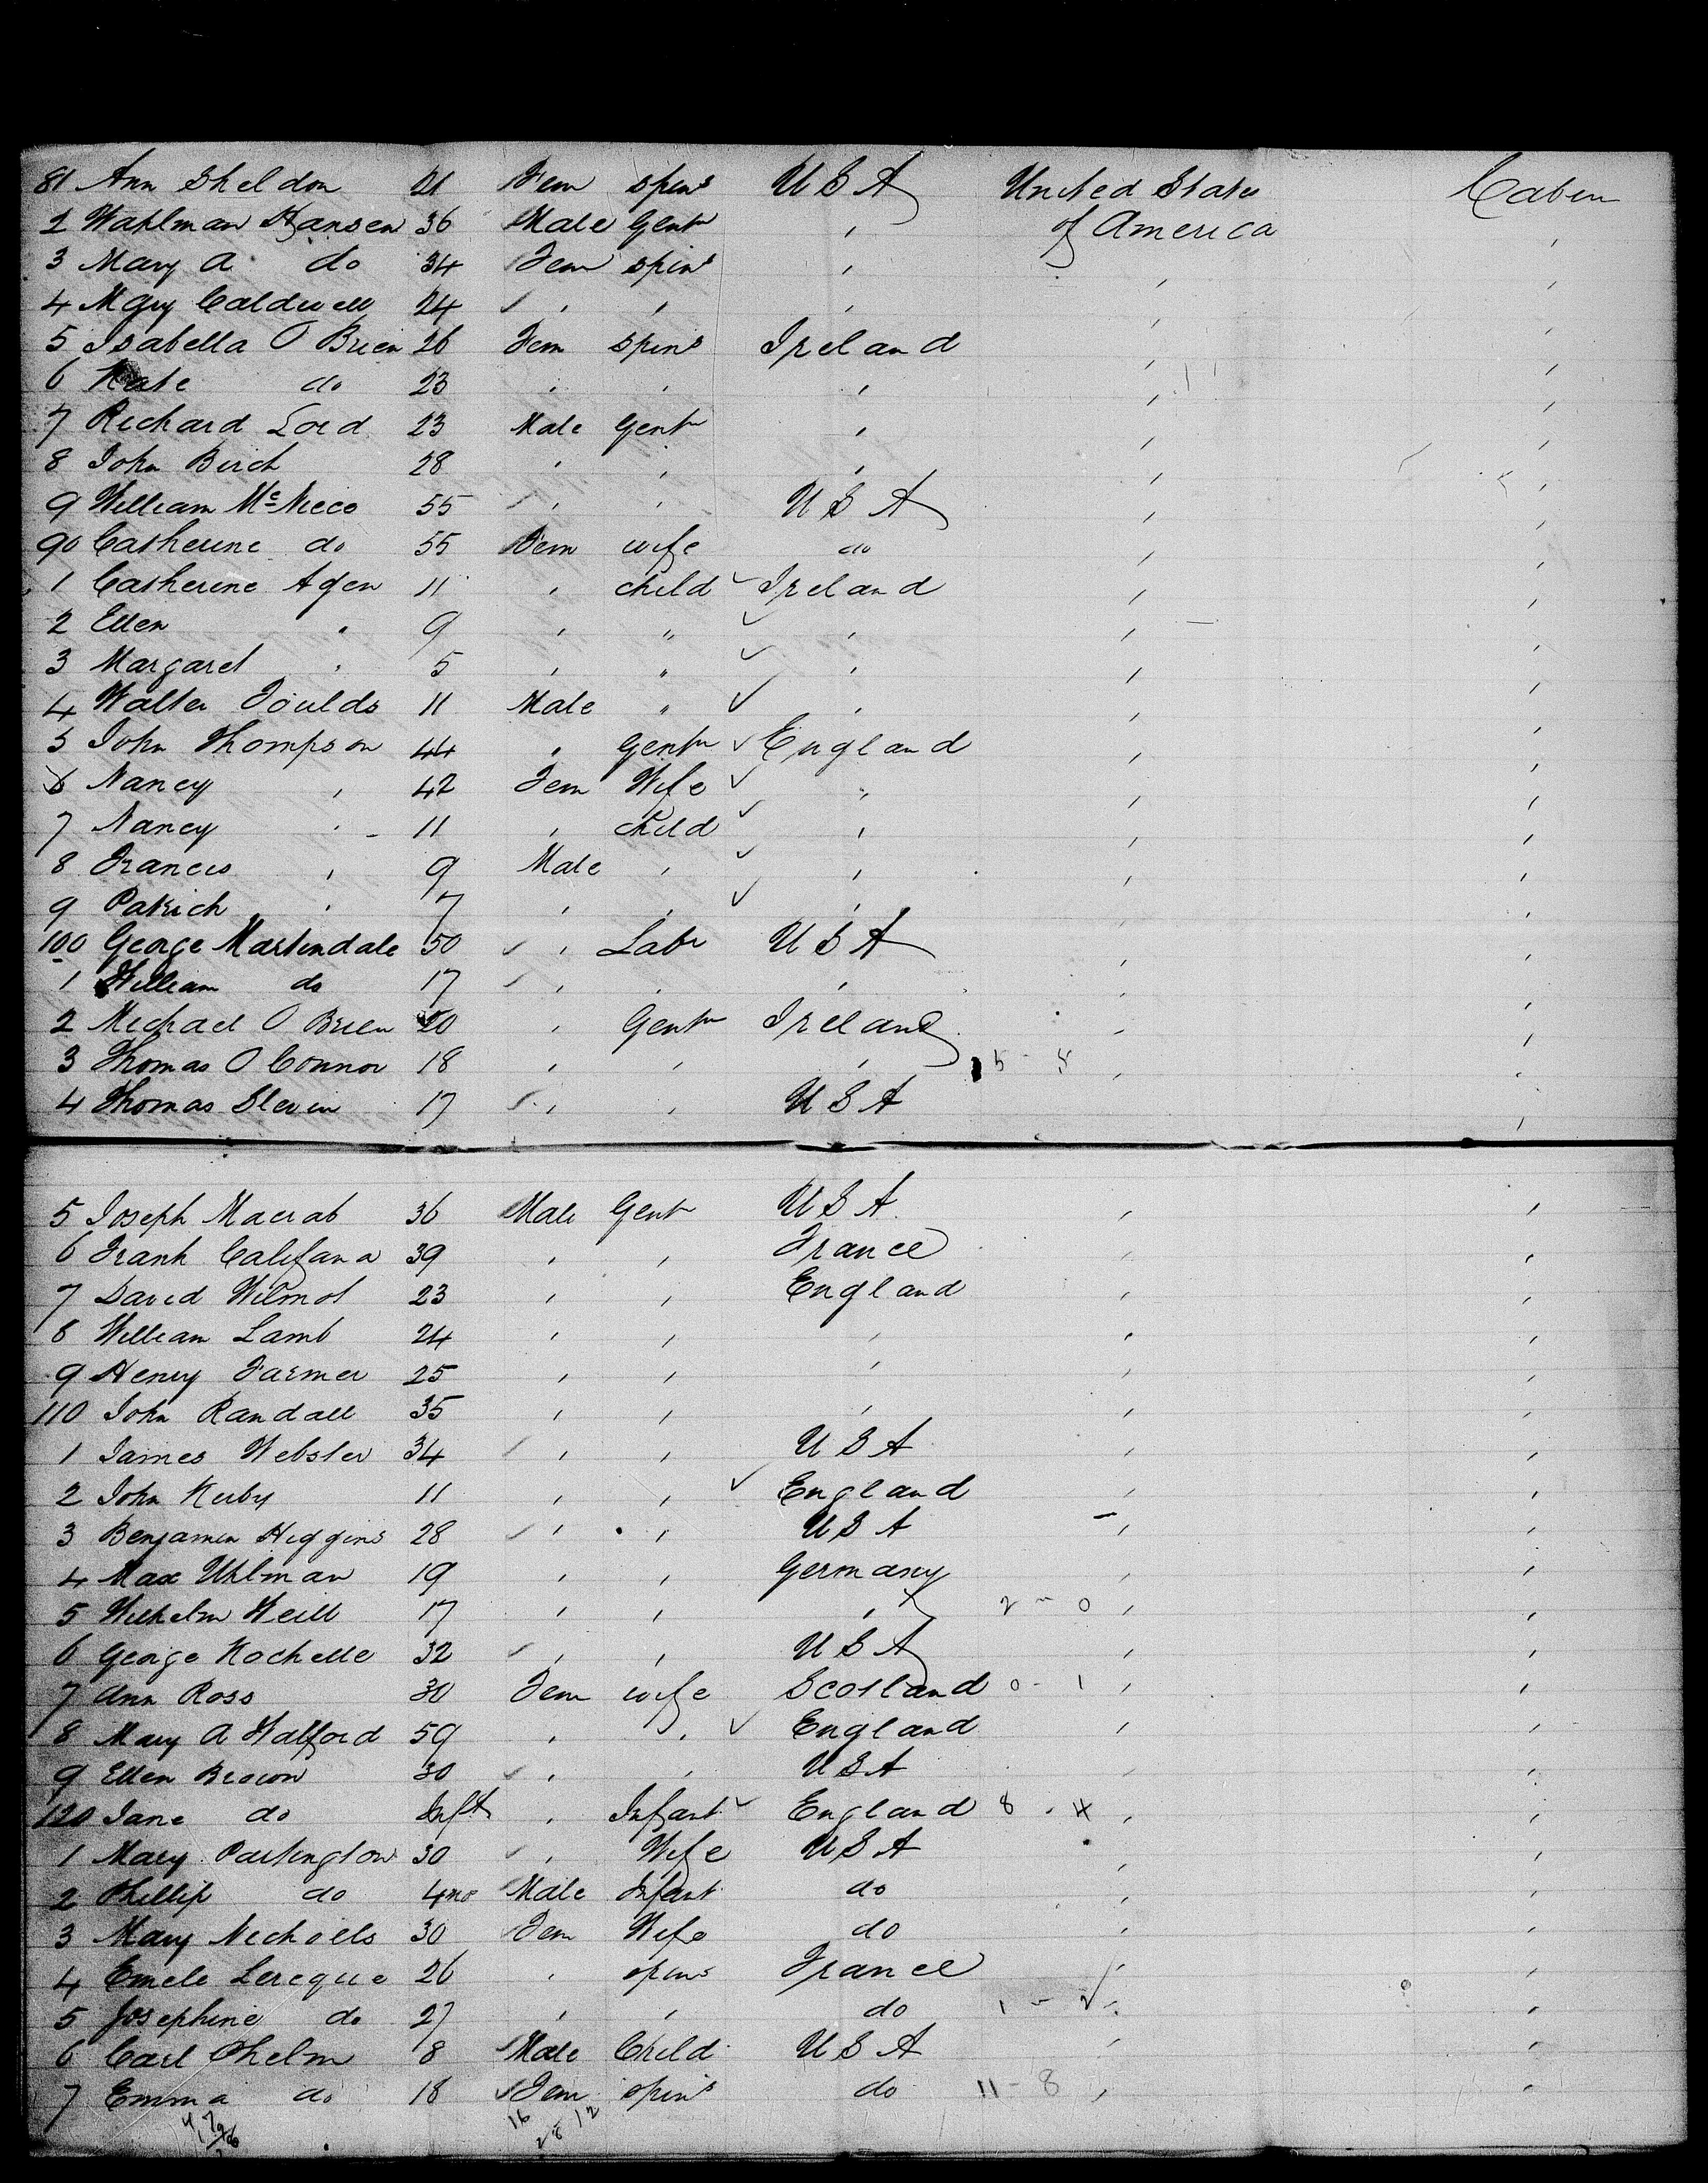 81 Ann Sheldon 21 Fem spins U S A United States Cabin
2 Wahlman Hansen 36 Male Gentn " of America "
3 Mary A do 34 Fem spins " " "
4 Mary Caldwell 24 " " " " "
5 Isabella O Brien 26 Fem Spins Ireland " "
6 Kate do 23 " " " " "
7 Richard Lord 23 Male Gentn " " "
8 John Birch 28 " " " " "
9 William Mc Neice 55 " " U S A " "
90 Catherine do 55 Fem wife do " "
1 Catherine Agen 11 " child Ireland " "
2 Ellen " 9 " " " " "
3 Margaret " 5 " " " " "
4 Walter Foulds 11 Male " " " "
5 John Thompson 44 " Gentn England " "
6 Nancy " 42 Fem Wife " " "
7 Nancy " 11 " Child " " "
8 Francis " 9 Male " " " "
9 Patrick " 7 " " " " "
100 George Martindale 50 " Labr U S A " "
1 William do 17 " " " " "
2 Michael O Brien 20 " Gentn Ireland " "
3 Thomas O Connor 18 " " " 5 - 5 " "
4 Thomas Slevin 17 " " U S A "
5 Joseph Macrab 36 Male Gentn U S A " "
6 Frank Califana 39 " " France " "
7 David Wilmot 23 " " England " "
8 William Lamb 24 " " " " "
9 Henry Farmer 25 " " " " "
110 John Randall 35 " " " " "
1 James Webster 34 " " U S A " "
2 John Kirby 11 " " England " "
3 Benjamin Higgins 28 " " U S A " "
4 Max Uhlman 19 " " Germany " "
5 Wilhelm Weill 17 " " " 2 - 0 " "
6 George Rochelle 32 " " U S A " "
7 Ann Ross 30 Fem wife Scotland 0 - 1 " "
8 Mary A Walford 59 " " England " "
9 Ellen Brown 30 " " U S A " "
120 Jane do Inft " Infant England 8 - 4 " "
1 Mary Partington 30 " Wife U S A " "
2 Phillip do 4mo Male Infant do " "
3 Mary Nicholls 30 Fem Wife do " "
4 Emele Lereque 26 " spins France " "
5 Josephine do 27 " " do 1 - 2 " "
6 Carl Phelm 8 Male Child U S A " "
7 Emma do 18 Fem spins do 11 - 8 " "
16 12
28